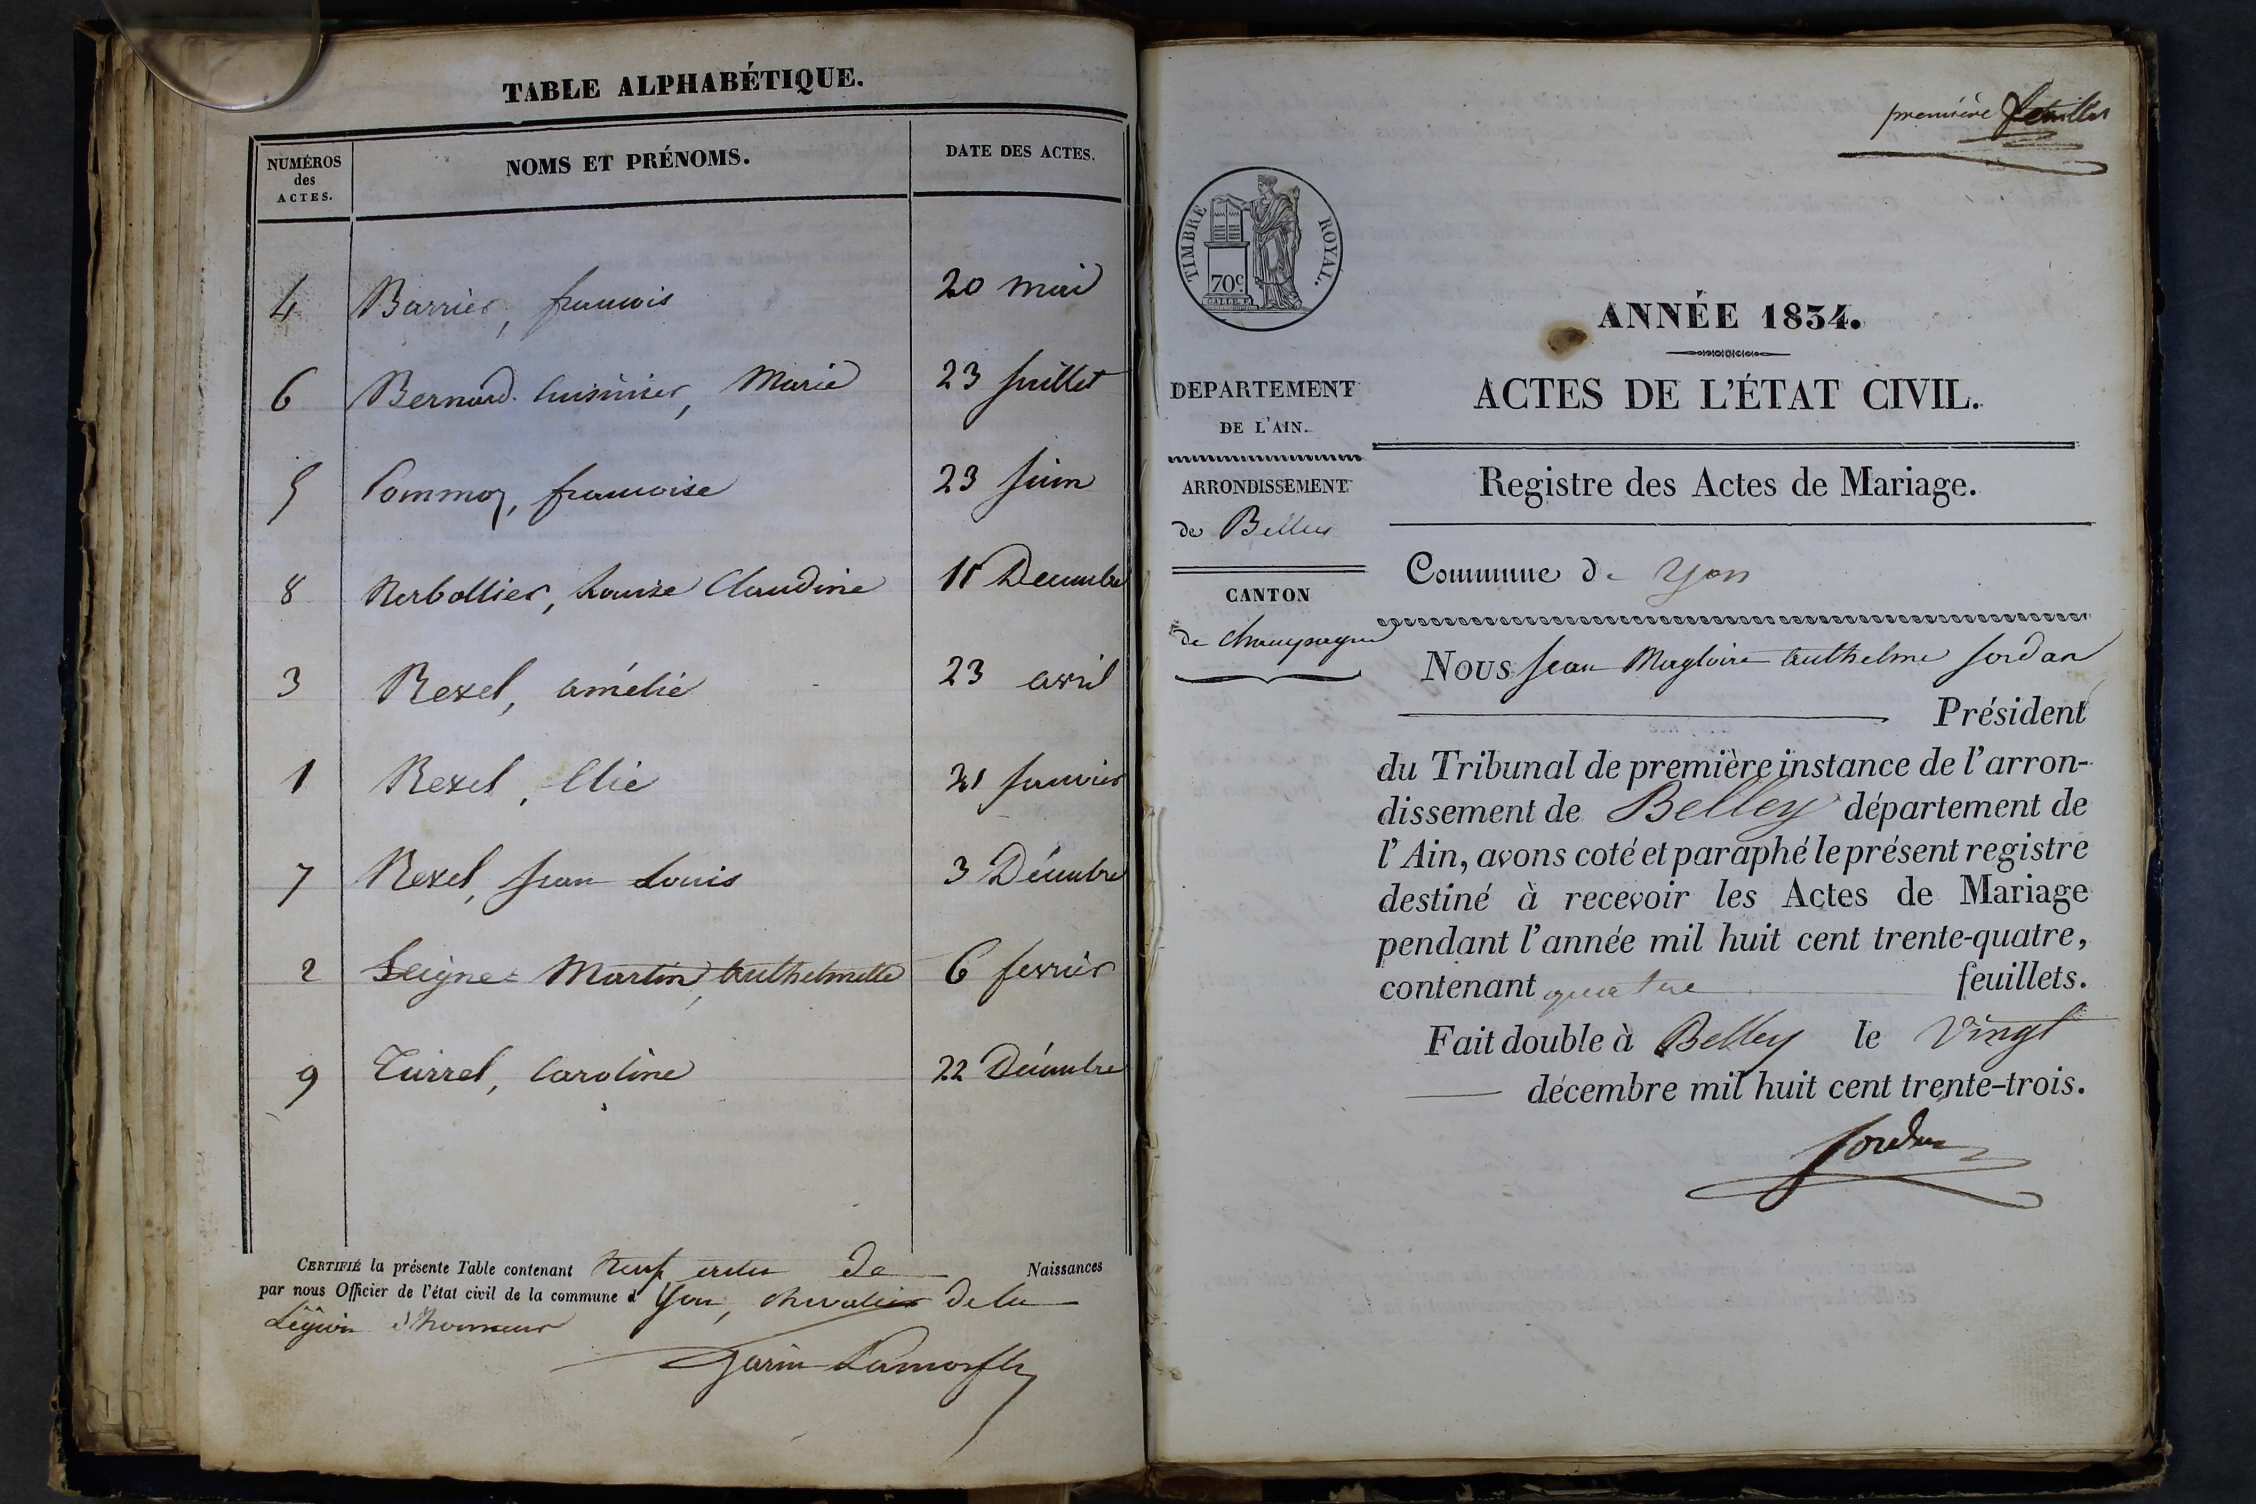 TABLE ALPHABÉTIQUE.
NUMÉROS des ACTES. NOMS ET PRÉNOMS. DATE DES ACTES.
4 Barrier, francois 20 mai
6 Bernard Cuisinier, Marie 23 juillet
5 Pommoz, francoise 23 juin
8 Nerbollier, Louise Claudine 11 Decembre
3 Revel, amélie 23 avril
1 Revel, Elie 21 janvier
7 Revel, Jean Louis 3 Décembre
2 Seigne-Martin, Anthelmette 6 fevrier
9 Turrel, Caroline 22 Décembre
CERTIFIÉ la présente Table contenant Neuf actes de Naissances
par nous Officier de l'état civil de la commune d' Yon, chevalier de la
Légion d'honneur
Garin Lamorfla
première feuillet
TIMBRE ROYAL.
70c.
ANNÉE 1834.
ACTES DE L'ÉTAT CIVIL.
DEPARTEMENT
DE L'AIN.
ARRONDISSEMENT
de Belley
CANTON
de Champagne
Registre des Actes de Mariage.
Commune de Yon
Nous Jean Magloire Anthelme Jordan
Président
du Tribunal de première instance de l'arron-
dissement de Belley département de
l'Ain, avons coté et paraphé le présent registre
destiné à recevoir les Actes de Mariage
pendant l'année mil huit cent trente-quatre,
contenant quatre feuillets.
Fait double à Belley le Vingt
décembre mil huit cent trente-trois.
Jordan